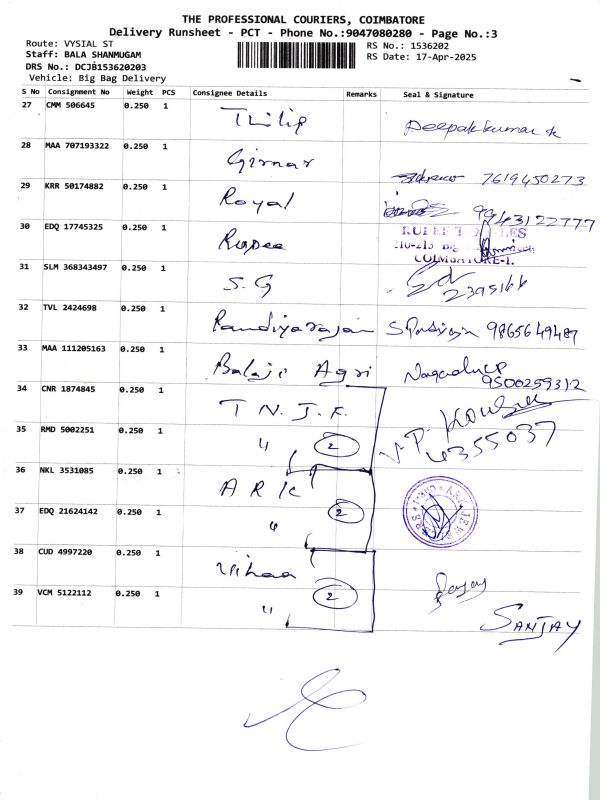 THE PROFESSIONAL COURIERS, COIMBATORE
Delivery Runsheet - PCT - Phone No.:9047080280 - Page No.:3
Route: VYSIAL ST
Staff: BALA SHANMUGAM
DRS No.: DCJB153620203
Vehicle: Big Bag Delivery
RS No.: 1536202
RS Date: 17-Apr-2025
S No Consignment No Weight PCS Consignee Details Remarks Seal & Signature
27 CMM 506645 0.250 1 Thilip Deepakkumar
28 MAA 707193322 0.250 1 Girnar 7619450273
29 KRR 50174882 0.250 1 Royal 9943122777
30 EDQ 17745325 0.250 1 Rupee
COIMBATORE-1.
31 SLM 368343497 0.250 1 S.G 2395166
32 TVL 2424698 0.250 1 Pandiyarajan 9865649487
33 MAA 111205163 0.250 1 Balaji Agri 9500259312
34 CNR 1874845 0.250 1 T N. J. F.
35 RMD 5002251 0.250 1 " 2 V.P. 4355037
36 NKL 3531085 0.250 1 A R K
37 EDQ 21624142 0.250 1 " 2
38 CUD 4997220 0.250 1 Vihaa
39 VCM 5122112 0.250 1 " 2 SANJAY